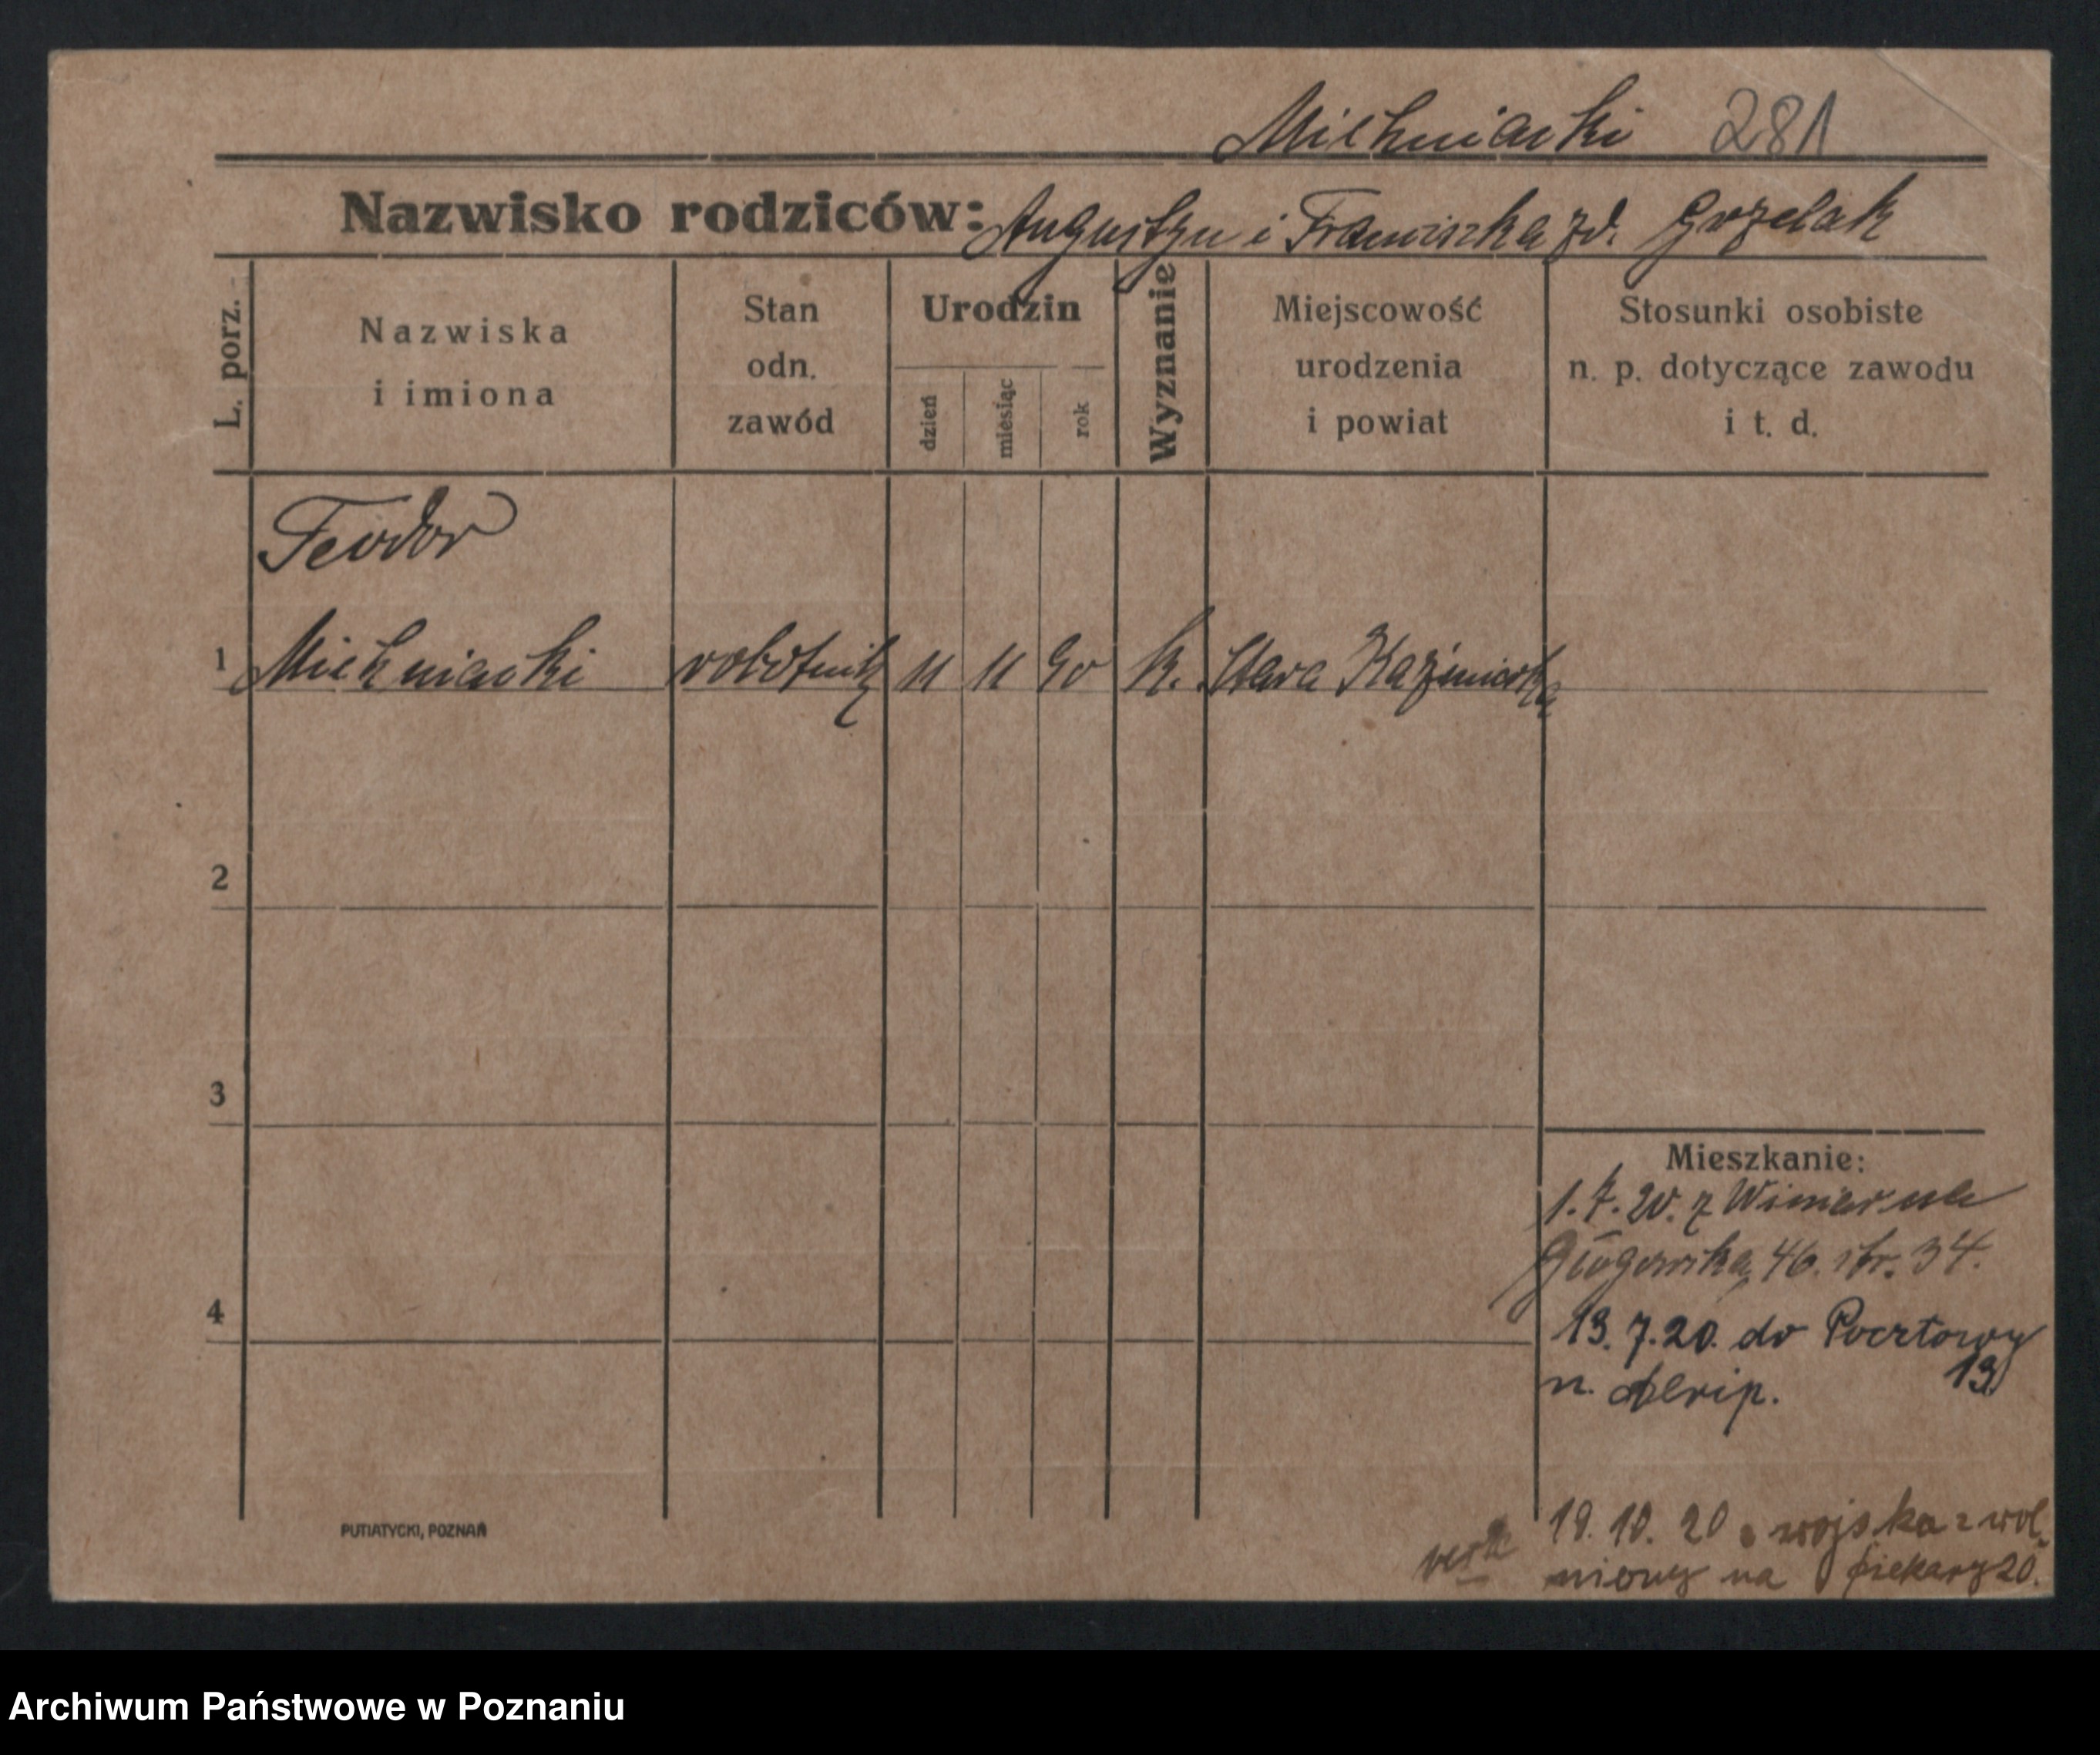 Michniacki 281
Nazwisko rodziców: Augustyn i Franciszka zd. Grzelak
L. porz.
Nazwiska
i imiona
Stan
odn.
zawód
Urodzin
dzień
miesiąc
rok
Wyznanie
Miejscowość
urodzenia
i powiat
Stosunki osobiste
n. p. dotyczące zawodu
i t. d.
Teodor
1 Michniacki robotnik 11 11 90 k. Stara Kaźmierka
2
3
4
Mieszkanie:
1.7.20. z Winiar
Głogowska 46. str. 34.
13.7.20. do Pocztowy
n. 13
19.10.20 z wojska zwol
niony na Piekary 20.
PUTIATYCKI, POZNAŃ
Archiwum Państwowe w Poznaniu